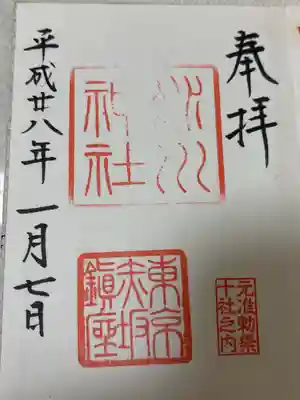 奉拝
氷川
神社
元准勅祭
十社之内
東京
赤坂
鎮座
平成廿八年一月七日